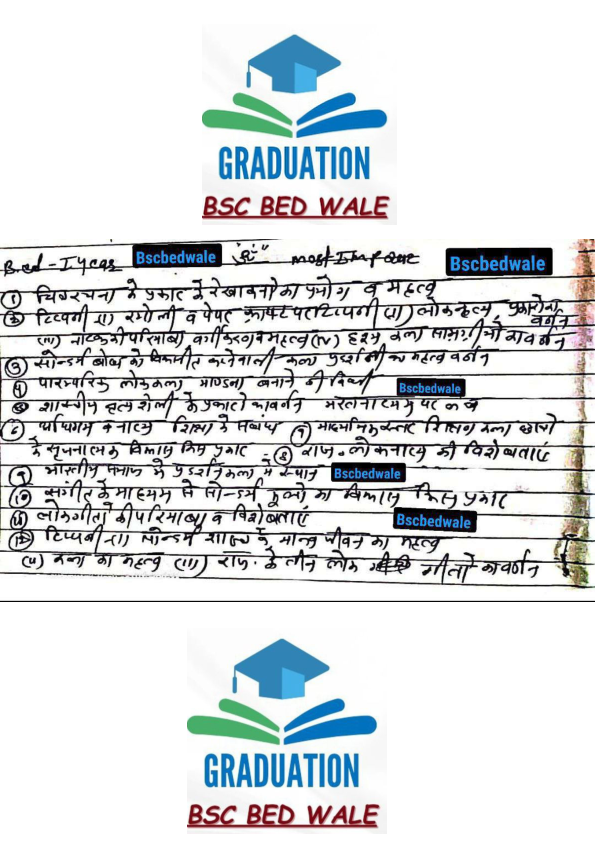 GRADUATION
BSC BED WALE
B.ed - I year Bscbedwale "ॐ" most Imp Que Bscbedwale
① चित्ररचना के प्रकार के रेखाचित्रों का प्रयोग व महत्व
② टिप्पणी (i) रंगोली व पेपर क्राफ्ट पर टिप्पणी (ii) लोकनृत्य प्रकारोका वर्णन
(iii) नाटक की परिभाषा वर्गीकरण व महत्व (iv) दृश्य कला सामग्री का वर्णन
③ सौन्दर्य बोध को विकसीत करनेवाली कला प्रदर्शनी का महत्व वर्णन
④ पारम्परिक लोककला माण्डना बनाने की विधी Bscbedwale
⑤ शास्त्रीय नृत्य शैली के प्रकारो का वर्णन भरतनाट्यम पर
⑥ व नाट्य शिक्षा में संबंध ⑦ माध्यमिक स्तर शिक्षण कला छात्रो
के सृजनात्मक विकास किस प्रकार ⑧ राज. लोकनाट्य की विशेषताएं
⑨ भारतीय समाज में प्रदर्शनकला में स्थान Bscbedwale
⑩ संगीत के माध्यम से सौन्दर्य मूल्यो का विकास किस प्रकार
⑪ लोकगीतों की परिभाषा व विशेषताएं Bscbedwale
⑫ टिप्पणी (i) सौन्दर्य शास्त्र के मानव जीवन का महत्व
(ii) कला का महत्व (iii) राज. के तीन लोक गीतों का वर्णन
GRADUATION
BSC BED WALE